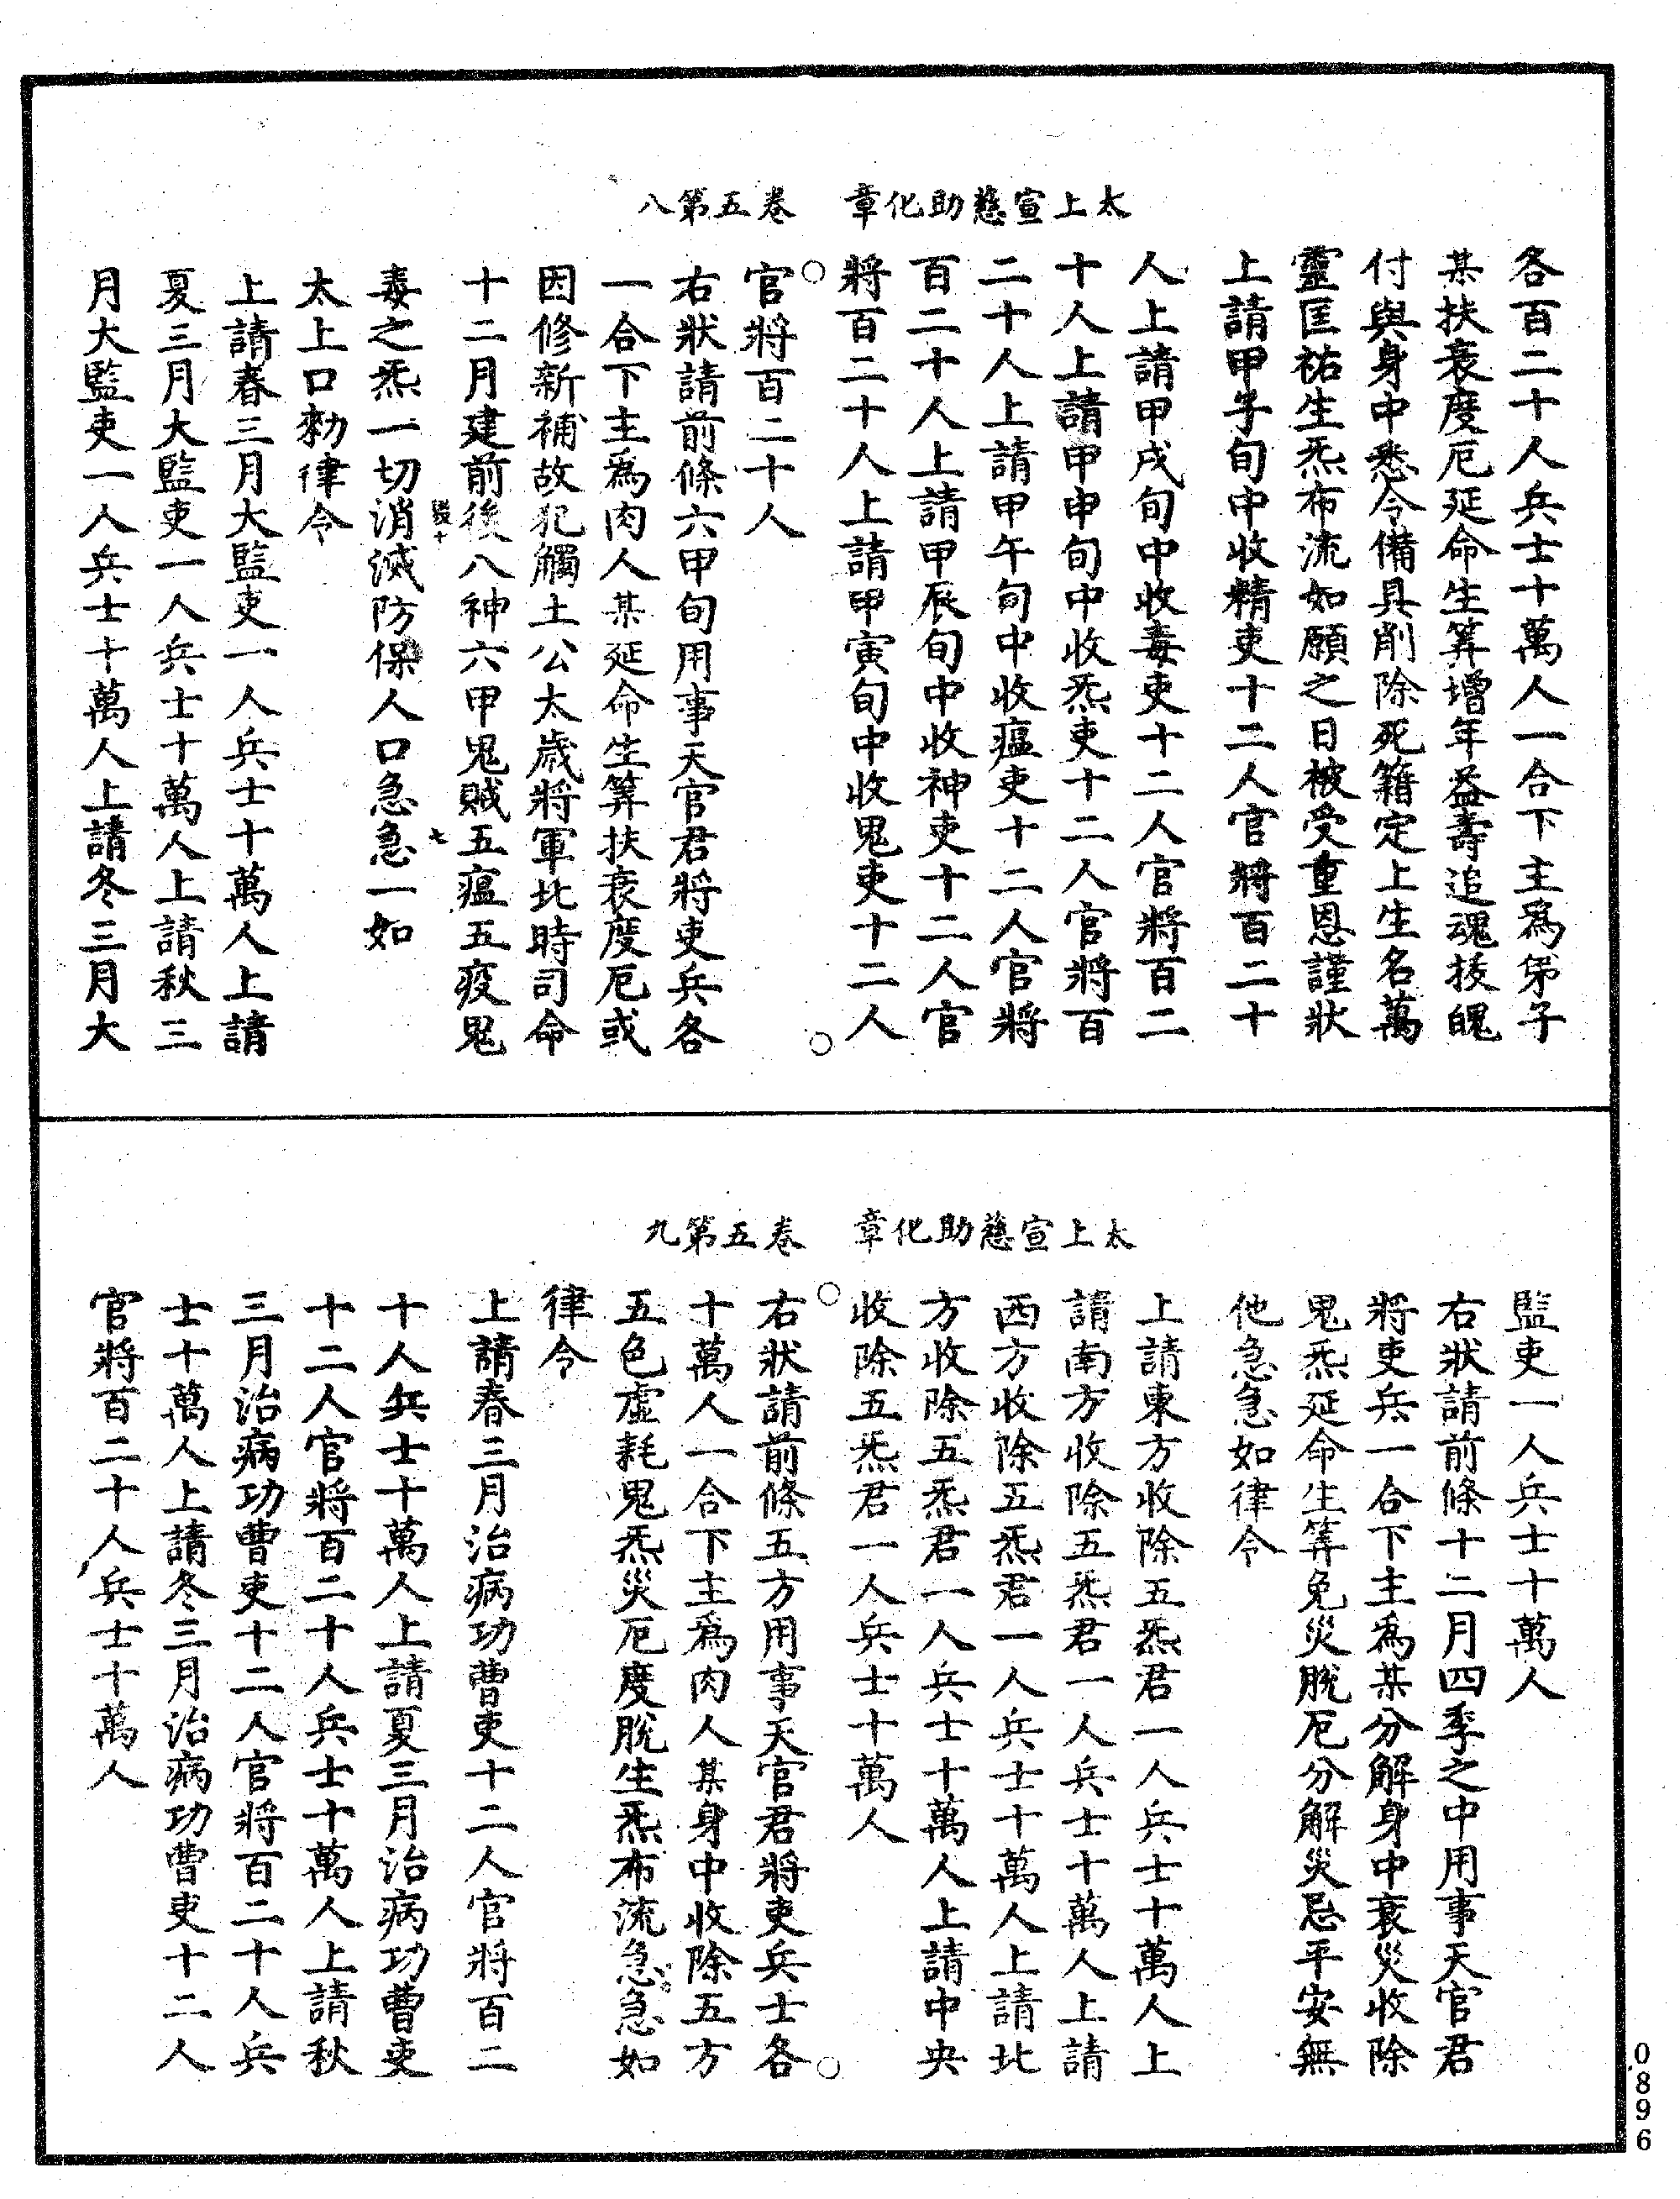 太上宣慈助化章　卷五第八
各百二十人兵士十萬人一合下主爲弟子
某扶衰度厄延命生筭增年益壽追魂拔魄
付與身中悉令備具削除死籍定上生名萬
靈匡祐生炁布流如願之日被受重恩謹狀
上請甲子旬中收精吏十二人官將百二十
人上請甲戌旬中收毒吏十二人官將百二
十人上請甲申旬中收炁吏十二人官將百
二十人上請甲午旬中收瘟吏十二人官將
百二十人上請甲辰旬中收神吏十二人官
將百二十人上請甲寅旬中收鬼吏十二人
官將百二十人
右狀請前條六甲旬用事天官君將吏兵各
一合下主爲肉人某延命生筭扶衰度厄或
因修新補故犯觸土公太歲將軍北時司命
十二月建前後八神六甲鬼賊五瘟五疫鬼
毒之炁一切消滅防保人口急急一如
太上口勑律令
上請春三月大監吏一人兵士十萬人上請
夏三月大監吏一人兵士十萬人上請秋三
月大監吏一人兵士十萬人上請冬三月大
太上宣慈助化章　卷五第九
監吏一人兵士十萬人
右狀請前條十二月四季之中用事天官君
將吏兵一合下主爲某分解身中衰災收除
鬼炁延命生筭免災脫厄分解災忌平安無
他急急如律令
上請東方收除五炁君一人兵士十萬人上
請南方收除五炁君一人兵士十萬人上請
西方收除五炁君一人兵士十萬人上請北
方收除五炁君一人兵士十萬人上請中央
收除五炁君一人兵士十萬人
右狀請前條五方用事天官君將吏兵士各
十萬人一合下主爲肉人某身中收除五方
五色虛耗鬼炁災厄度脫生炁布流急急如
律令
上請春三月治病功曹吏十二人官將百二
十人兵士十萬人上請夏三月治病功曹吏
十二人官將百二十人兵士十萬人上請秋
三月治病功曹吏十二人官將百二十人兵
士十萬人上請冬三月治病功曹吏十二人
官將百二十人兵士十萬人
0896